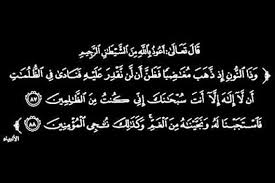 قَالَ تَعَالَىٰ: أَعُوذُ بِاللَّهِ مِنَ الشَّيْطَانِ الرَّجِيمِ
﴿ وَذَا النُّونِ إِذ ذَّهَبَ مُغَاضِبًا فَظَنَّ أَن لَّن نَّقْدِرَ عَلَيْهِ فَنَادَىٰ فِي الظُّلُمَاتِ
أَن لَّا إِلَٰهَ إِلَّا أَنتَ سُبْحَانَكَ إِنِّي كُنتُ مِنَ الظَّالِمِينَ ٨٧
فَاسْتَجَبْنَا لَهُ وَنَجَّيْنَاهُ مِنَ الْغَمِّ وَكَذَٰلِكَ نُنجِي الْمُؤْمِنِينَ ٨٨ ﴾
الأنبياء